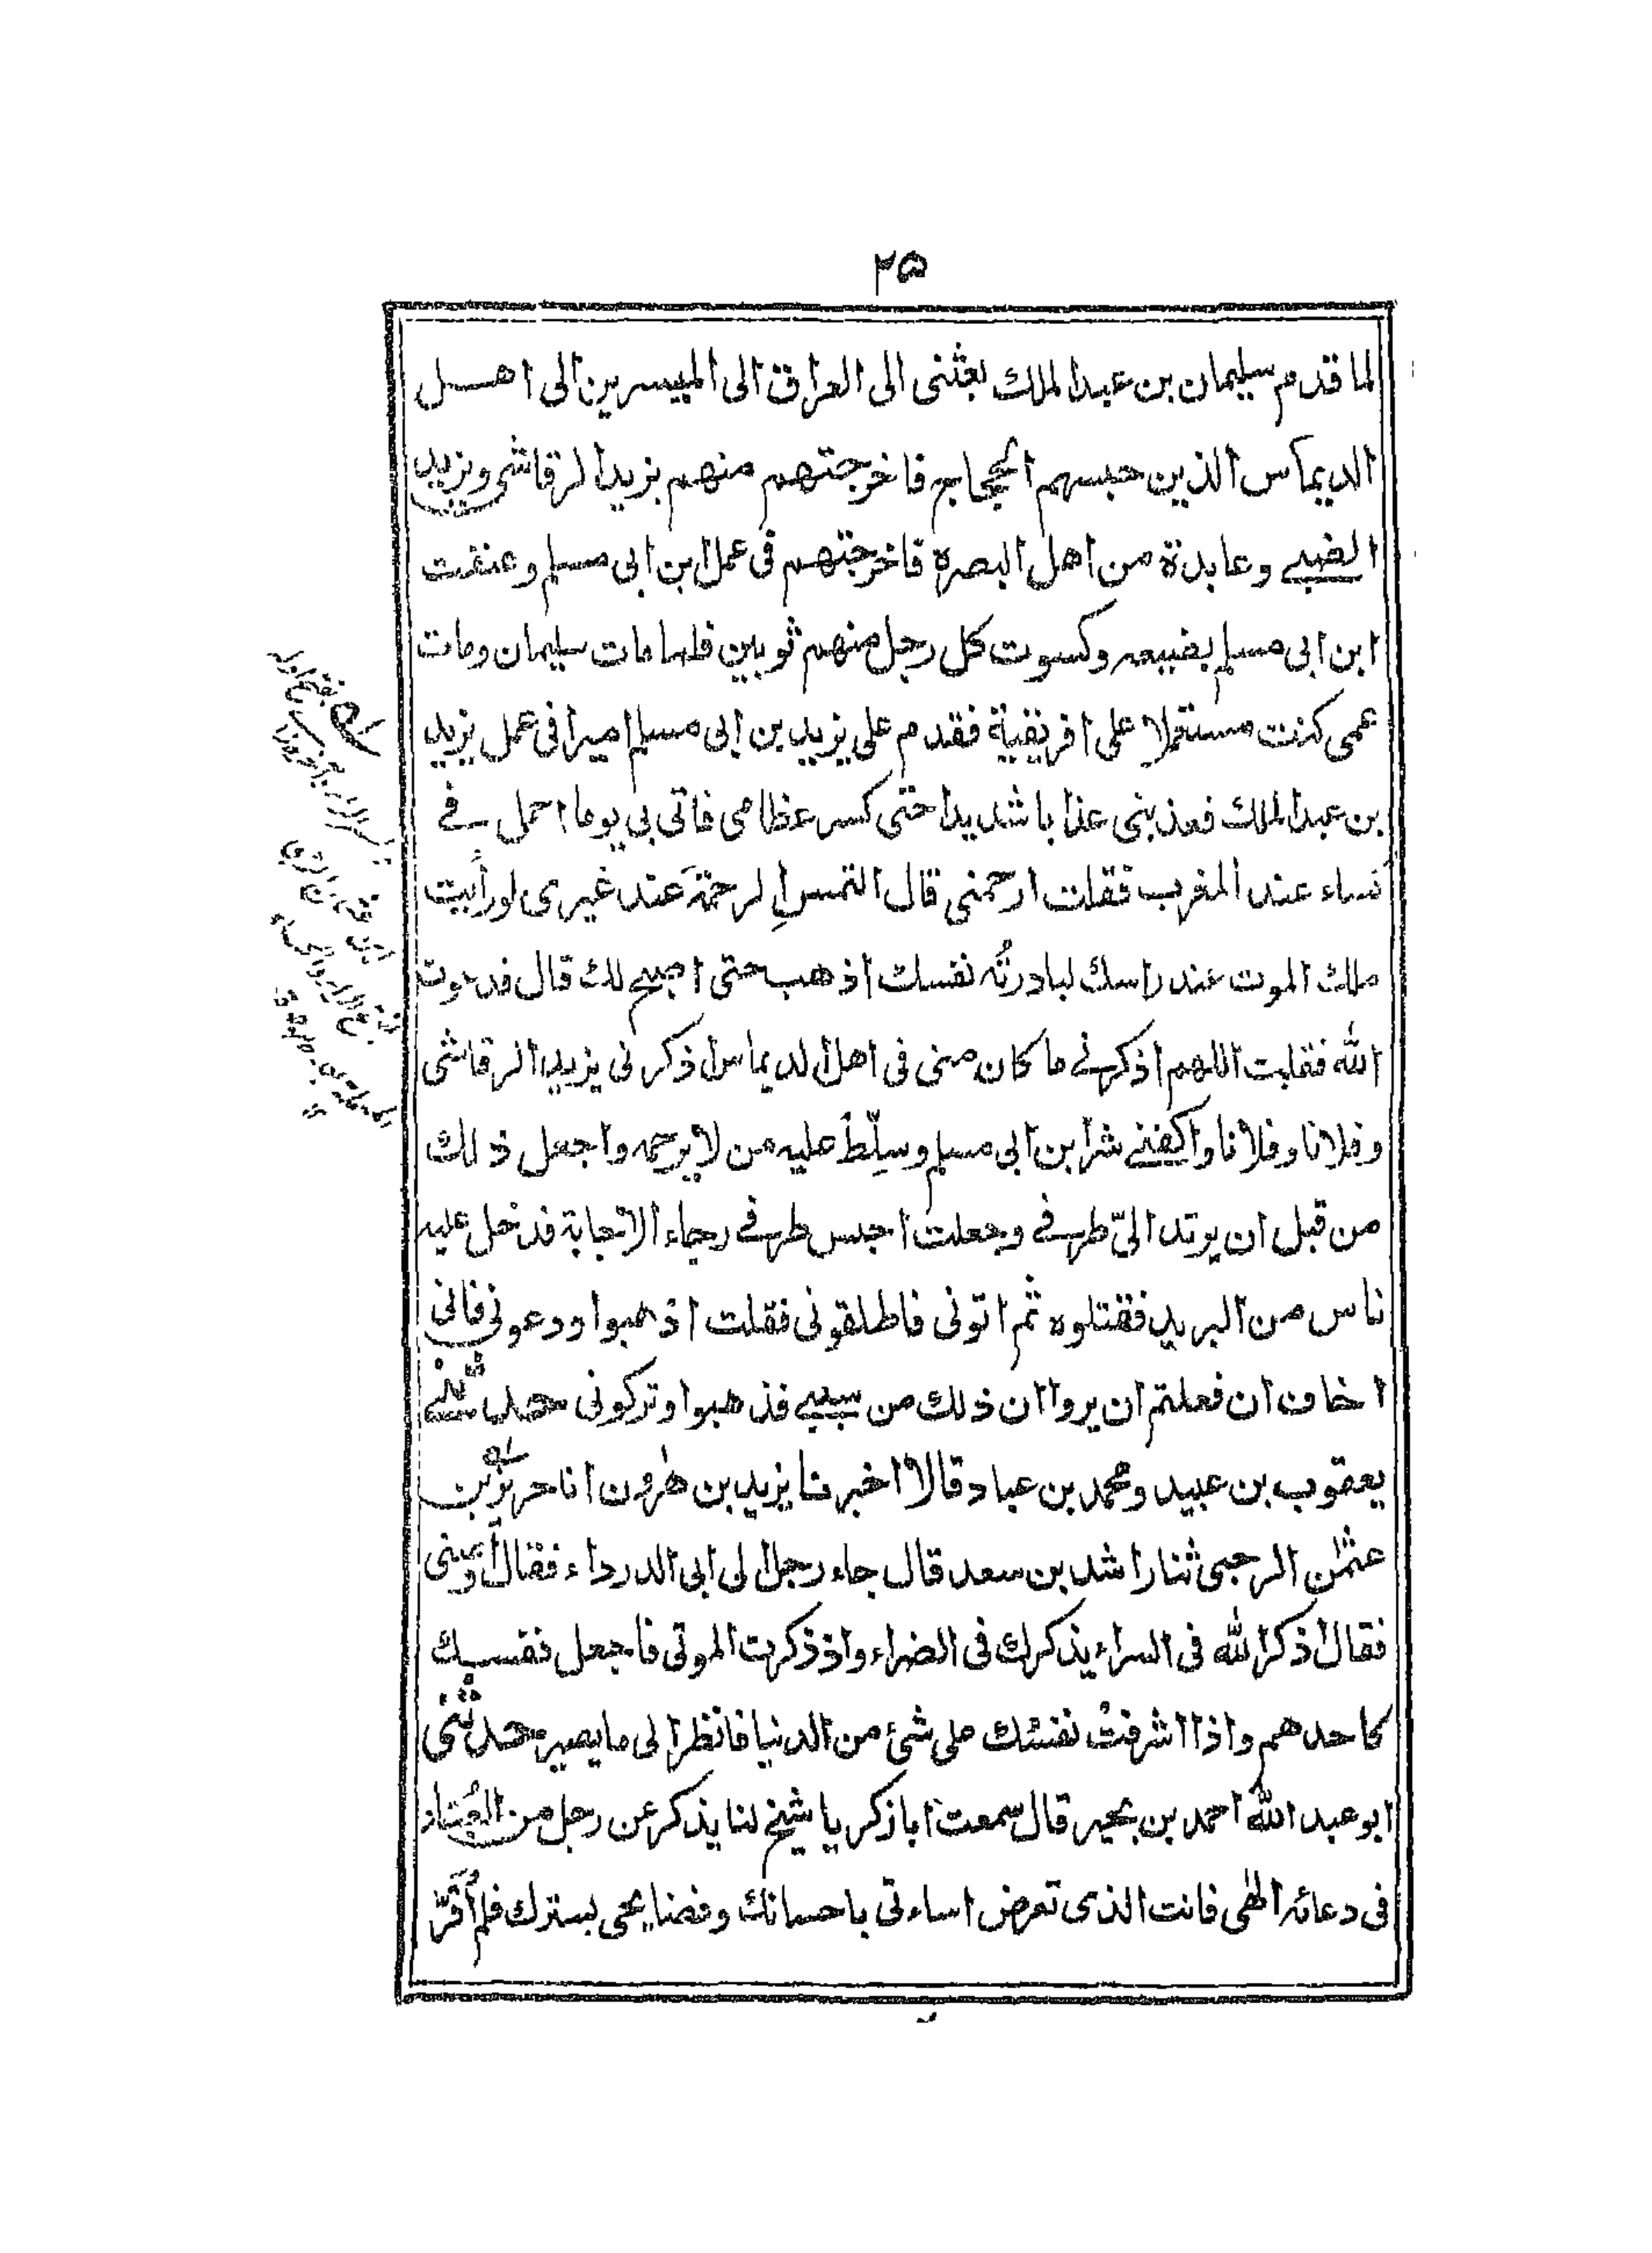 ٢٥
لما قدم سليمان بن عبد الملك بعثنى الى العراق الى المسيرين الى اهل
الديماس الذين حبسهم الحجاج فاخرجتهم منهم يزيد الرقاشى ويزيد
الضبى وعابدة من اهل البصرة فاخرجتهم فى عمل ابن ابى مسلم وعنفت
ابن ابى مسلم بضيعه وكسوت كل رجل منهم ثوبين فلما مات سليمان ومات
عمى كنت مستعملا على افريقية فقدم على يزيد بن ابى مسلم اميرا فى عمل يزيد
بن عبد الملك فعذبنى عذابا شديدا حتى كسر عظامى فاتى بى يوما احمل فى
كساء عند المغرب فقلت ارحمنى قال التمس الرحمة عند غيرى لو رأيت
ملك الموت عند راسك لبادرته نفسك اذهب حتى اصبح لك قال فدعوت
الله فقلت اللهم اذكرنى ما كان منى فى اهل الديماس اذكرنى يزيد الرقاشى
وفلانا وفلانا واكفنى شر ابن ابى مسلم وسلّط عليه من لا يرحمه واجعل ذلك
من قبل ان يرتد الىّ طرفى وجعلت احبس طرفى رجاء الاجابة فدخل عليه
ناس من البربر فقتلوه ثم اتونى فاطلقونى فقلت اذهبوا ودعونى فانى
اخاف ان فعلتم ان يروا ان ذلك من سببى فذهبوا وتركونى حدثنى
يعقوب بن عبيد ومحمد بن عباد قالا اخبرنا يزيد بن هٰرون انا حريز بن
عثمٰن الرحبى ثنا راشد بن سعد قال جاء رجل الى ابى الدرداء فقال أوصنى
فقال اذكر الله فى السراء يذكرك فى الضراء واذ ذكرت الموتى فاجعل نفسك
كاحدهم واذا اشرفت نفسك على شئ من الدنيا فانظر الى ما يصير حدثنى
ابو عبد الله احمد بن بحير قال سمعت ابا زكريا شيخ لنا يذكر عن رجل من العُبّاد
فى دعائه الهى فانت الذى تعرض اساءتى باحسانك وفضنايحى بسترك فلم أقرّ